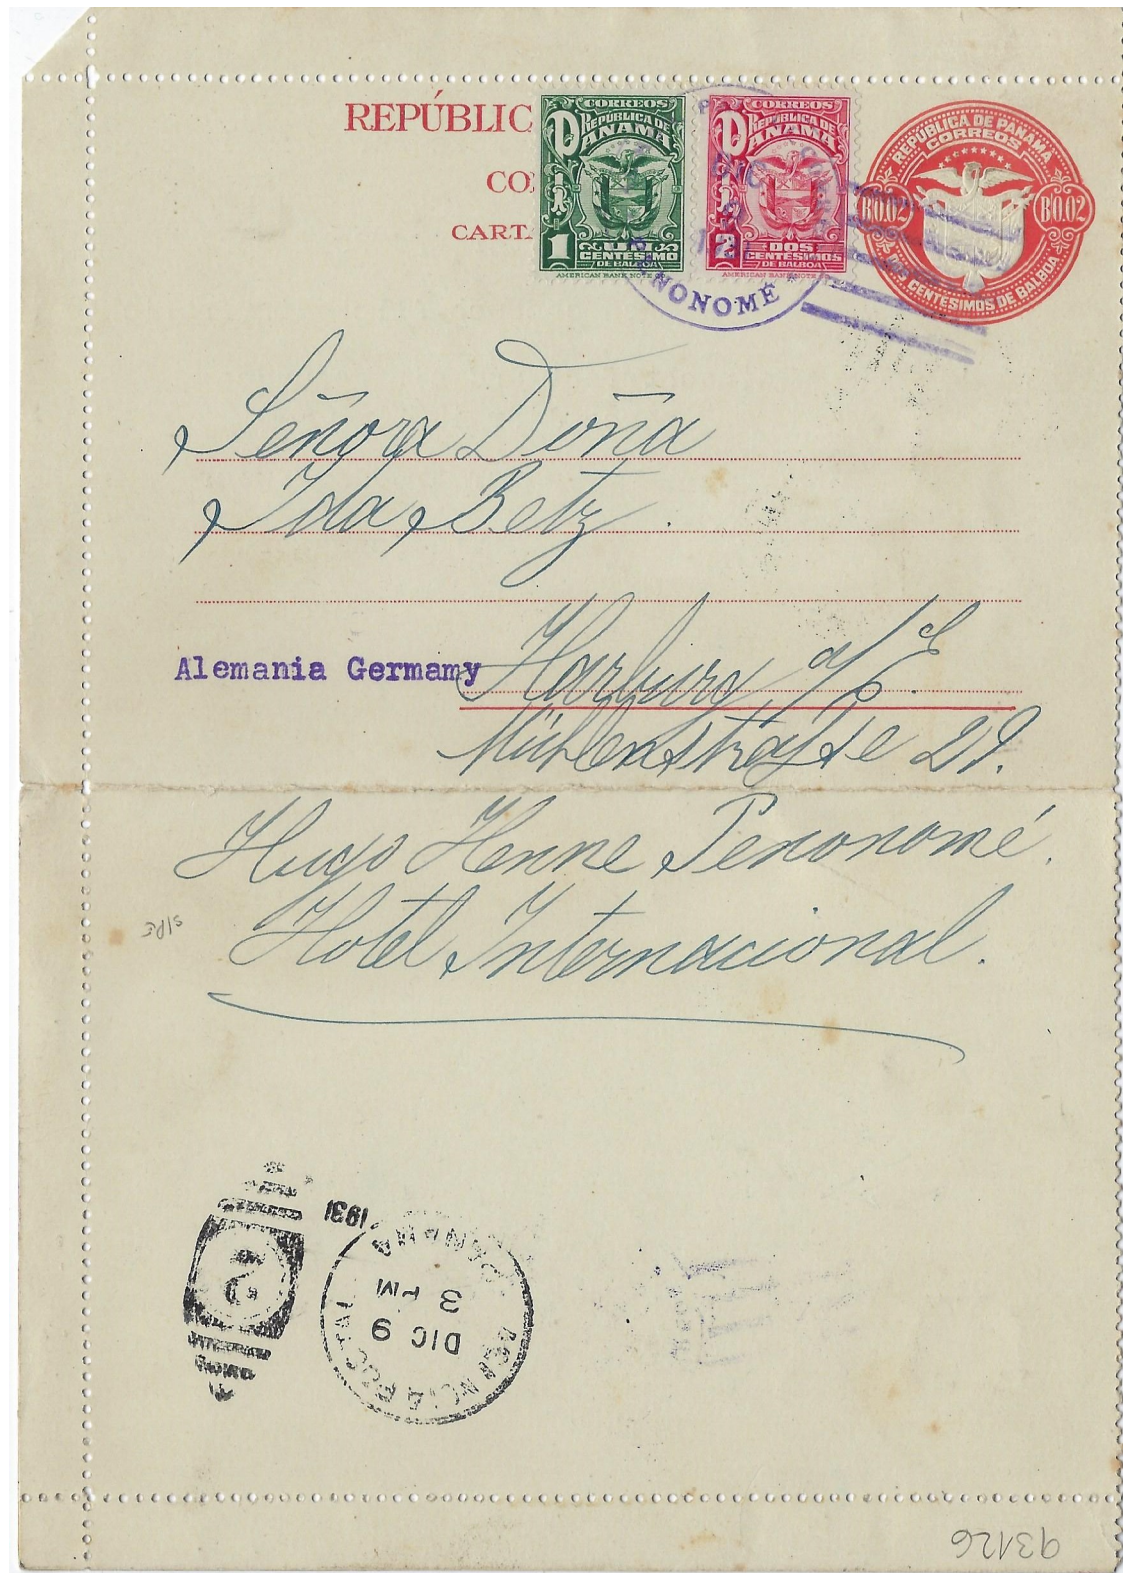 REPÚBLIC
CO
CART
CORREOS
REPÚBLICA DE
PANAMA
1 UN 1
CENTÉSIMO
DE BALBOA
AMERICAN BANK NOTE
CORREOS
REPÚBLICA DE
PANAMA
2 DOS
CENTÉSIMOS
DE BALBOA
AMERICAN BANK NOTE
REPÚBLICA DE PANAMÁ
CORREOS
B/0.02 B/0.02
CENTÉSIMOS DE BALBOA
DIC
PENONOMÉ
Señora Doña
Ida Betz.
Alemania Germamy Harburg a/E.
Mühlenstraße 29.
Hugo Henne Penonomé.
Hotel Internacional.
1931
AGENCIA POSTAL
PANAMA
DIC 9
3 PM
2
93126